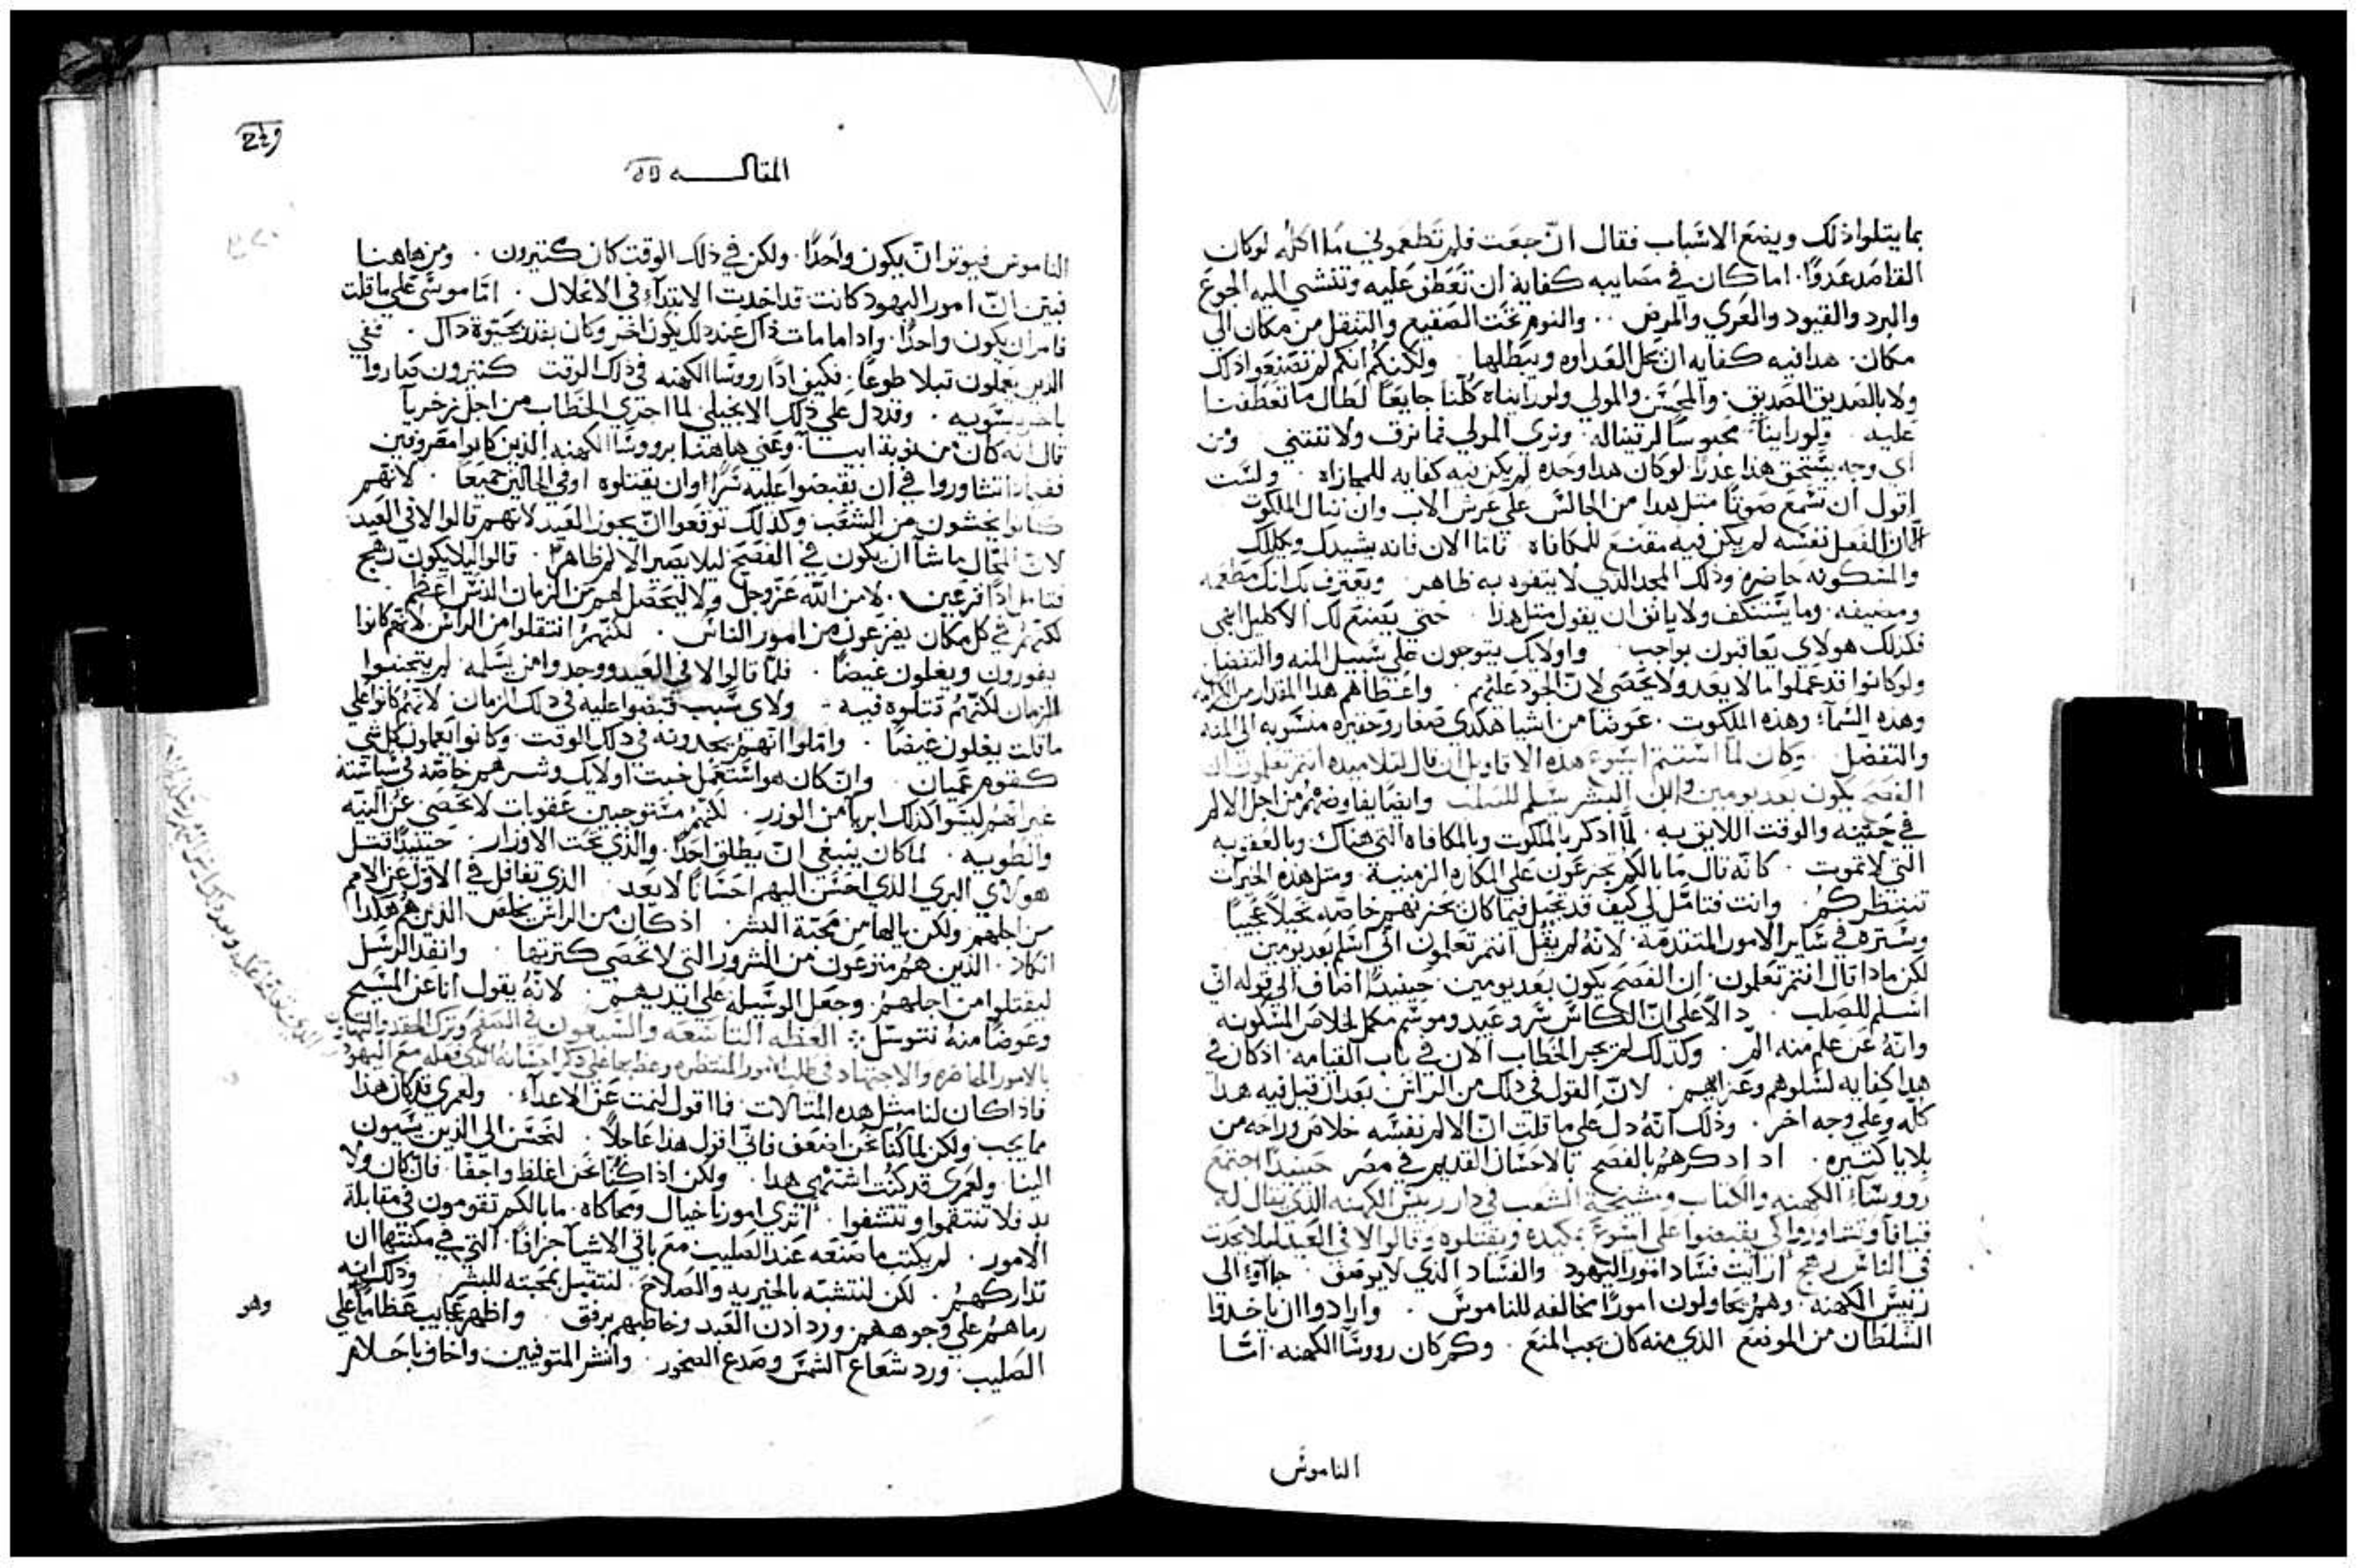 بما يتلوا ذلك ويضع الاسباب فقال انّ جعت فلم تطعموني ما اكله لوكان
القاصد عدوًا. اما كان في مصايبه كفاية ان تعطف عليه وتنشي اليه الجوع
والبرد والقيود والعري والمرض .. والنوم تحت الصقيع والتنقل من مكان الي
مكان. هدا فيه كفايه ان يحل العداوه ويبطلها. ولكنكم انكم لم تصنعوا ذلك
ولا بالصديق الصديق. والمحسن والمولي ولو راينا كلبًا جايعًا لطال ما تعطفنا
عليه. ولو راينا محبوسًا لرتيناله. ونري المولي فما نرق ولا ننتني ومن
اي وجه يستحق هذا عدرًا. لو كان هدا وحده لم يكن فيه كفايه للمجازاه. ولست
اقول ان تسمع صوتًا متل هدا من الجالس علي عرش الاب وان تنال الملكوت
الّا ان الفعل نفسه لم يكن فيه مقنع للمكافاه فاما الان فانه يشيدك ويكللك
والمسكونه حاضره وذلك المجد الذي لا يتفوه به ظاهر ويعترف بك انك مطعمه
ومضيفه. وما يستنكف ولا يانف ان يقول متل هذا. حتي يصنع لك الاكليل ابهي
فكذلك هولاي يعاقبون بواجب. واولايك يتوجون علي سبيل المنه والتفضل
ولو كانوا قد عملوا ما لا يعد ولا يحصي لانّ الجود عليهم. واعطاهم هدا المقدار من الكرامه
وهذه السمآء وهذه الملكوت. عوضًا من اشيا هكدي صغار وحقيره منسوبه الي المنه
والتفضل. وكان لما استتم ايسوع هده الاقاويل ان قال لتلاميده انتم تعلمون ان
الفصح يكون بعد يومين وابن البشر يسلم للصلب وايضًا يفاوضهم من اجل الالم
في حينه والوقت اللايق به. لما ادكر بالملكوت وبالمكافاه التي هناك وبالعقوبه
التي لا تموت. كانّه قال ما بالكم تجزعون علي المكاره الزمنية. ومتل هذه الخيرات
تنتظركم. وانت فتامّل لي كيف قد تحيل فيما كان يحزنهم خاصّه تحيلًا عجيبًا
وستره في ساير الامور المتقدمة. لانّه لم يقل انتم تعلمون اني اسلم بعد يومين
لكن ماذا قال انتم تعلمون. ان الفصح يكون بعد يومين. حينيدًا اضاف الي قوله اني
اسلم للصلب. دالًّا علي انّ الكاس سر وعيد وموسم مكمل لخلاص المسكونه
وانّه عن علم منه الم. وكذلك لم يجر الخطاب الان في باب القيامه. اذ كان في
هدا كفايه لسلوهم وعزايهم. لانّ القول في ذلك من الراس بعد ان قيل فيه هدا
كلّه وعلي وجه اخر. وذلك انّه دل علي ما قلت انّ الالم نفسه خلاص وراحه من
بلايا كتيره. اد ادكرهم بالفصح بالاحسان القديم في مصر حينيدًا اجتمع
رووساء الكهنه والكتاب ومشيخة الشعب في دار رييس الكهنه الذي يقال له
قيافا وتشاوروا كي يقبضوا علي ايسوع بمكيده ويقتلوه وقالوا لا في العيد ليلا يحدت
في الناس رهج. ارايت فساد امور اليهود والفساد الذي لا يوصف. جاآوا الى
رييس الكهنه. وهم يحاولون امورًا مخالفه للناموس. وارادوا ان ياخدوا
السلطان من الموضع الذي منه كان يجب المنع. وكم كان رووسآ الكهنه. امّا
الناموس
المقالــــه
الناموس فيوتر انّ يكون واحدًا. ولكن في ذلك الوقت كان كتيرون. ومن هاهنا
تبين انّ امور اليهود كانت قد اخدت الابتدآء في الانحلال. امّا موسي علي ما قلت
فامر ان يكون واحدًا. وادا ما مات ذاك عند ذلك يكون اخر وكان يقدر بحيوة داك. ففي
قال انّه كان من نوبة ابيا. وعني هاهنا برووسا الكهنه الذين كانوا مصروفين
فيماذا تشاوروا في ان يقبضوا عليه سرًا او ان يقتلوه او في الحالين جميعًا. لانّهم
كانوا يخشون من الشعب وكذلك توقعوا انّ يجوز العيد لانهم قالوا لا في العيد
لانّ المحّال ما شآ ان يكون في الفصح ليلا يصير الالم ظاهرًا. قالوا ليلا يكون رهج
لكنّهم في كل مكان يفزعون من امور الناس. لكنّهم انتقلوا من الراس لانّهم كانوا
يفورون ويغلون غيضًا. فلما قالوا لا في العيد ووجدوا من يسلمه. لم يتجنبوا
الزمان لكنّهم قتلوه فيه. ولاي سبب قبضوا عليه في ذلك الزمان. لانّهم كانوا علي
ما قلت يغلون غيضًا. وامّلوا انّهم يجدونه في ذلك الوقت. وكانوا يعملون كل شي
كقوم عميان. وانّ كان هو استعمل خبت اولايك وشرهم خاصّه في سياسته
غير انّهم ليسوا كذلك ابريا من الوزر. لكنّهم مستوجبين عقوبات لا تحصي عن النيّه
والطويه. لما كان ينبغي انّ يطلق احدًا. والذي تحت الاوزار. حينيدًا قتل
هولاي البري الذي احسن اليهم احسانًا لا يعد الذي تغافل في الاوّل عن الامم
من اجلهم ولكن يالها من محبّة البشر. اذ كان من الراس يخلص الذين هم هكدا
انكاد. الذين هم منزعون من الشرور التي لا تحصي كترتها. وانفد الرسل
ليقتلوا من اجلهم. وجعل الوسيله علي ايديهم. لانّه يقول انا عن المسيح
وعوضًا منه نتوسّل. العظه التاسعه والسبعون في الصفح وترك الحقد والتهاون
بالامور الحاضره والاجتهاد في طلب الامور المنتظره
فاذا كان لنا مثل هده المثالات فما اقول لنمت عن الاعدآء. ولعمري قد كان هذا
مما يجب ولكن لما كنّا نحن اضعف فاني اقول هذا عاجلًا. لنحسن الى الذين يسيون
الينا. ولعمري قد كنت اشتهي هدا. ولكن اذا كنّا نحن اغلظ واجفا. فان كان ولا
بد فلا تنتقموا وتتشفوا. اتري امورنا خيال ومحاكاه. ما بالكم تقومون في مقابلة
الامور. لم يكتب ما صنعه عند الصليب مع باقي الاشيآ جزافًا. التي في مكنتها ان
تداركهم. لكن لنتشبّه بالخيريه والصلاح. لنتقيل بمحبته للبشر. وذلك انه
رماهم علي وجوههم. ورد ادن العبد وخاطبهم برفق. واظهر عجايب عظامًا علي
الصليب. ورد شعاع الشمس وصدع الصخور. وانشر المتوفيين. واخاف باحلام
وهو